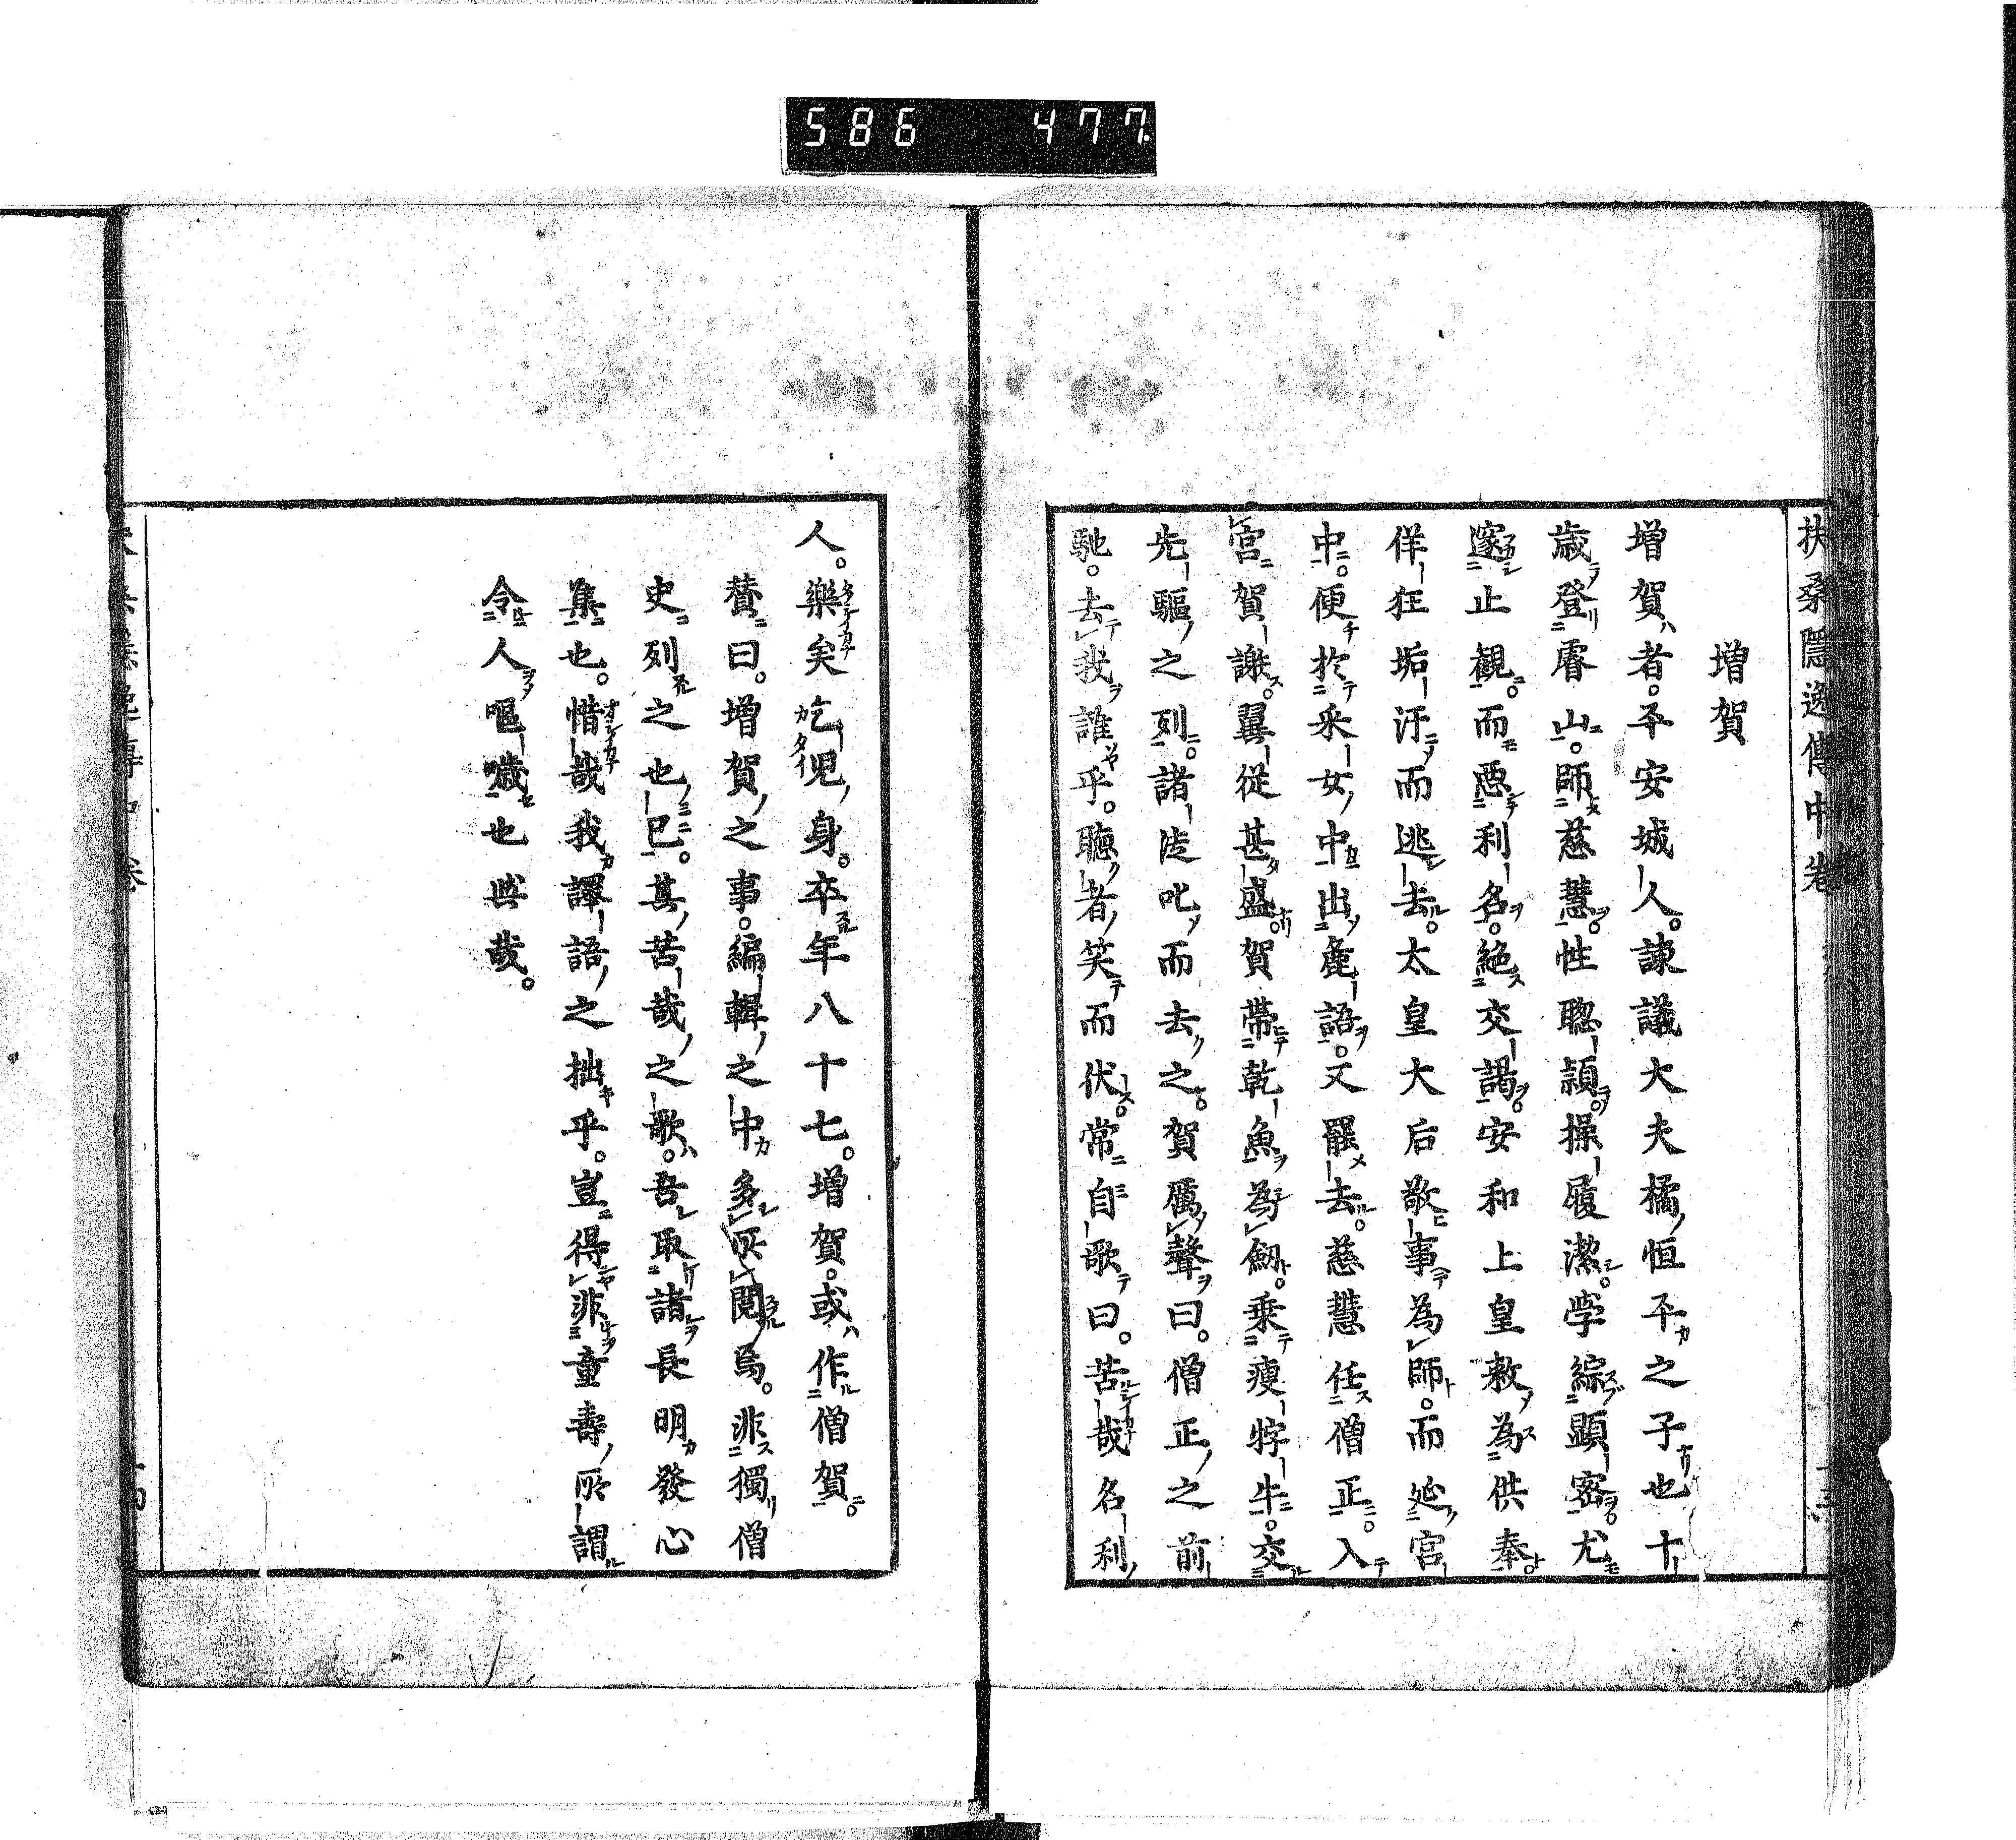 586 477
扶桑隠逸傳中巻
増賀
増賀者。平安城人。諫議大夫橘恒平之子也十
歳登睿山。師慈慧。性聦頴。操履潔。学綜顕密。尤
邃止観。而惡利名。絶交謁。安和上皇敕為供奉
佯狂垢汙而逃去。太皇大后敬事為師。而延宮
中。便於采女中出麁語。又罷去。慈慧任僧正。入
宮賀謝。翼從甚盛。賀帶乾魚為劔。乗痩牸牛。交
先驅之列。諸徒叱而去之。賀厲聲曰。僧正之前
馳。去我誰乎。聴者笑而伏。常自歌曰。苦哉名利
人。樂矣乞児身。卒年八十七。増賀。或作僧賀。
賛曰。増賀之事。編輯之中多所閲焉。非獨僧
史列之也已。其苦哉之歌。吾取諸長明發心
集也。惜哉我譯語之拙乎。豈得非童壽所謂
令人嘔噦也與哉。